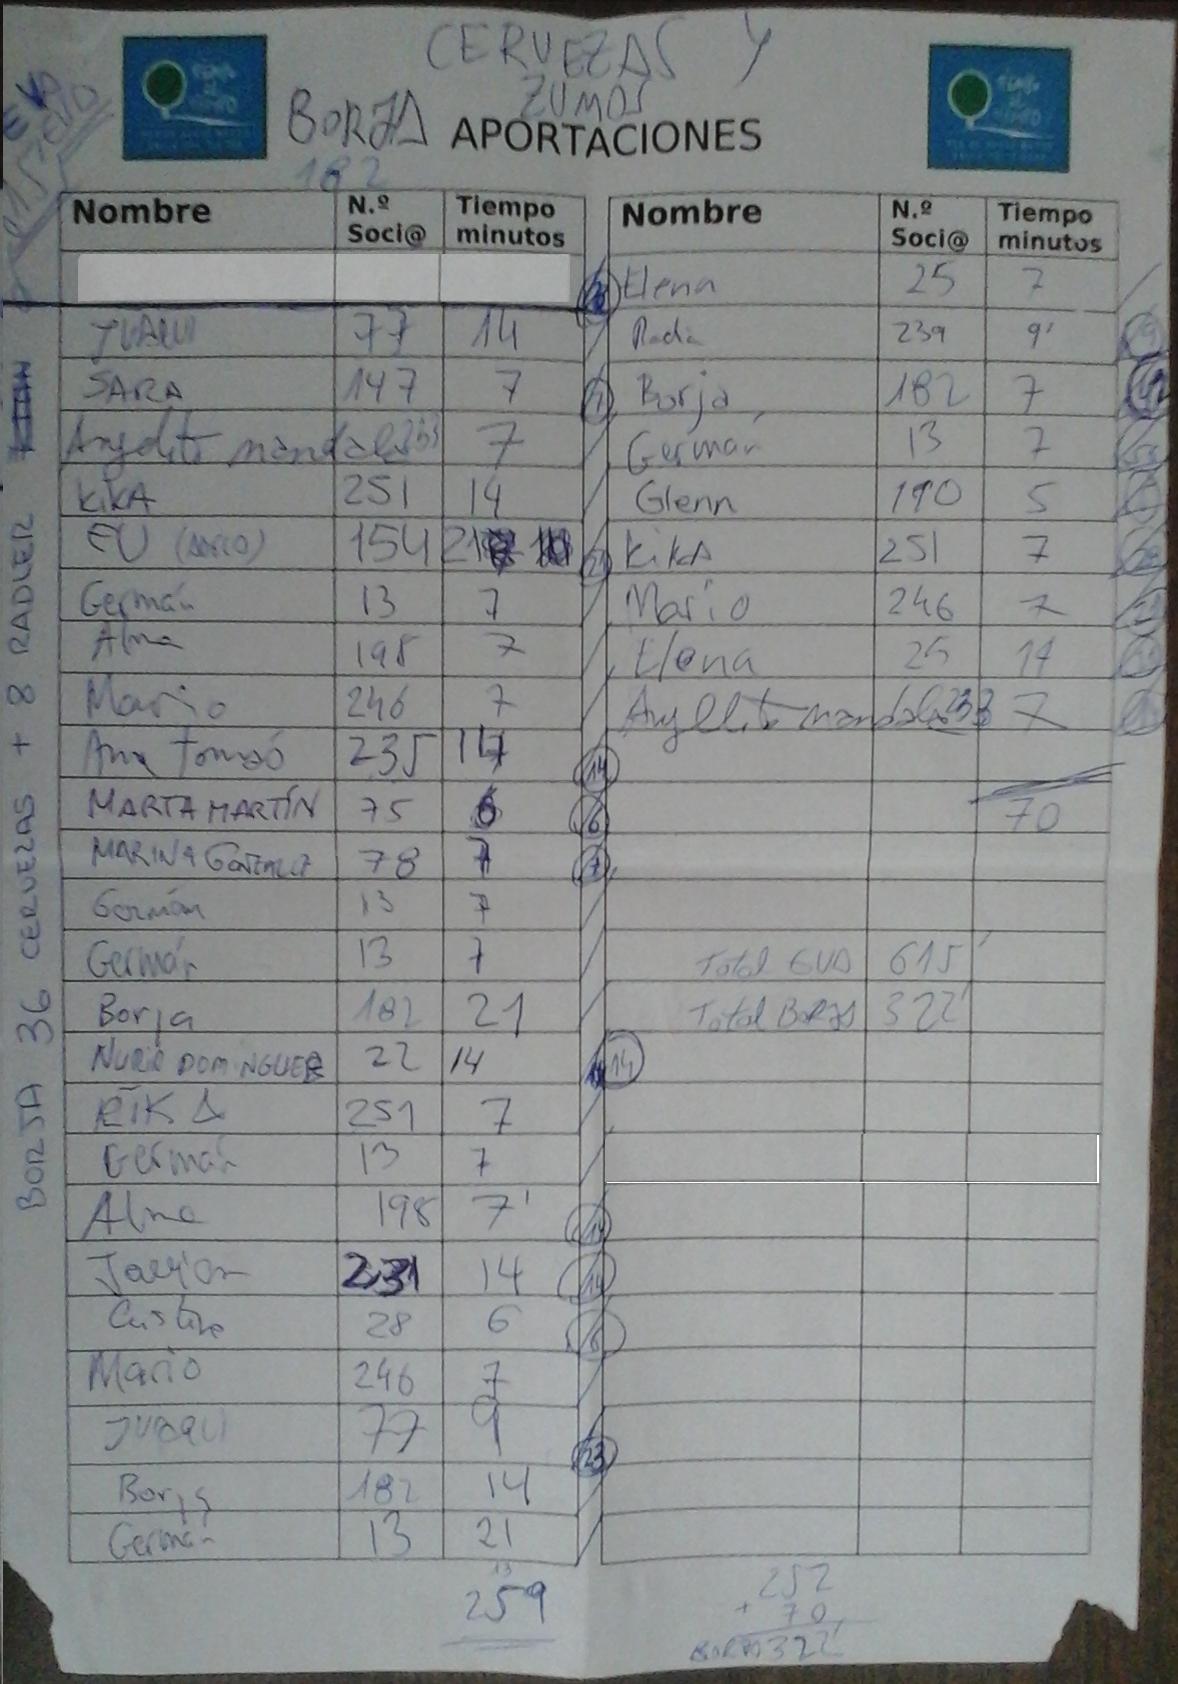 CERVEZAS Y
ZUMOS
BORJA APORTACIONES
182
Nombre N.º Soci@ Tiempo minutos
JUANI 77 14
SARA 147 7
Angelito mandala 233 7
KIKA 251 14
EVA (socio) 154 21
Germán 13 7
Alma 198 7
Mario 246 7
Ana Tomsó 235 14
MARTA MARTÍN 75 6
MARINA González 78 7
Germán 13 7
Germán 13 7
Borja 182 21
NURIA DOMINGUEZ 22 14
KIKA 251 7
Germán 13 7
Alma 198 7'
Javier 231 14
Cristina 28 6
Mario 246 7
JUANI 77 9
Borja 182 14
Germán 13 21
13
259
Nombre N.º Soci@ Tiempo minutos
Elena 25 7
239 9'
Borja 182 7
Germán 13 7
Glenn 190 5
KIKA 251 7
Mario 246 7
Elena 25 14
Angelito mandala 233 7
70
Total EVA 615'
Total BORJA 322'
252
+ 70
BORJA 322'
14
6
7
14
14
14
6
23
BORJA 36 CERVEZAS + 8 RADLER
EVA